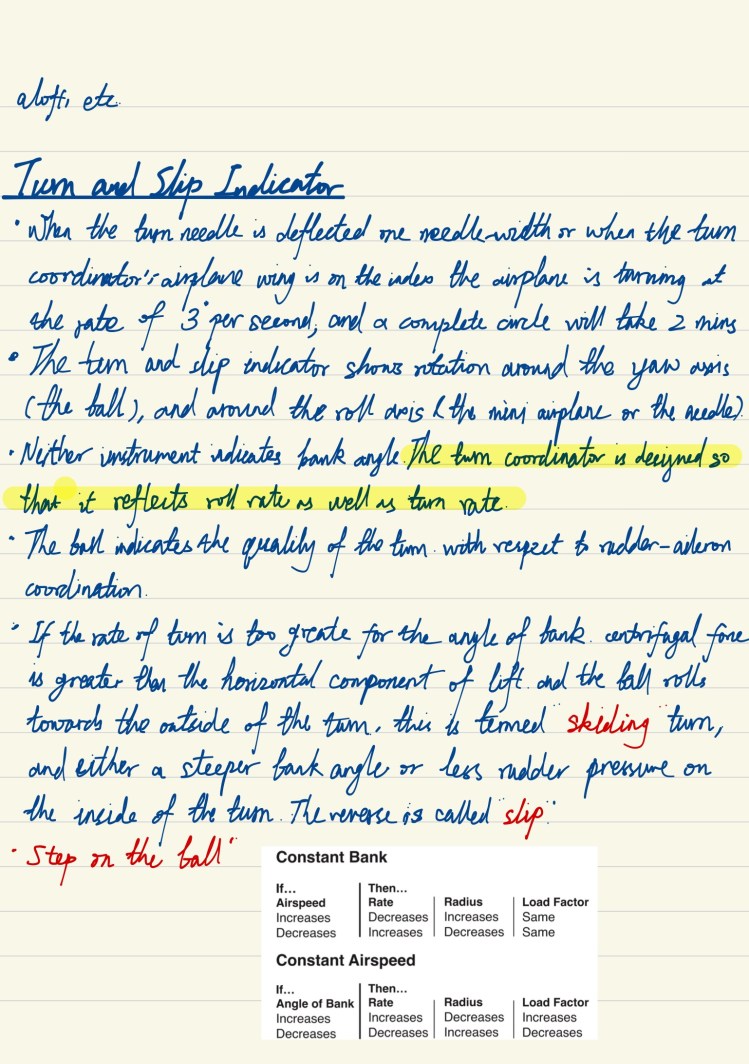 aloft, etc.
Turn and Slip Indicator
• When the turn needle is deflected one needle-width or when the turn
coordinator's airplane wing is on the index the airplane is turning at
the rate of 3° per second, and a complete circle will take 2 mins
• The turn and slip indicator shows rotation around the yaw axis
(the ball), and around the roll axis (the mini airplane or the needle).
• Neither instrument indicates bank angle. The turn coordinator is designed so
that it reflects roll rate as well as turn rate.
• The ball indicates the quality of the turn. with respect to rudder-aileron
coordination.
• If the rate of turn is too greate for the angle of bank. centrifugal force
is greater than the horizontal component of lift. and the ball rolls
towards the outside of the turn. this is termed "skiding" turn,
and either a steeper bank angle or less rudder pressure on
the inside of the turn. The reverse is called "slip".
• Step on the ball"
Constant Bank
If... Then...
Airspeed Rate Radius Load Factor
Increases Decreases Increases Same
Decreases Increases Decreases Same
Constant Airspeed
If... Then...
Angle of Bank Rate Radius Load Factor
Increases Increases Decreases Increases
Decreases Decreases Increases Decreases